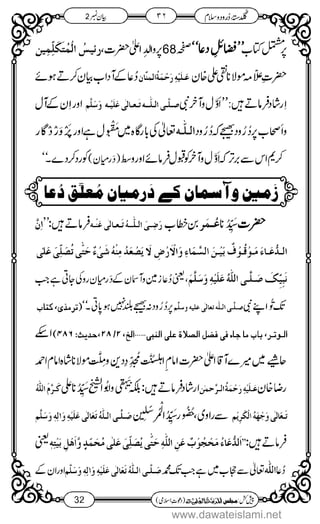 بیان نمبر 2
۳۲
گلدستۂ درود و سلام
پر مشتمل کتاب ’’فضائلِ دعا‘‘ صفحہ 68 پر والدِ اعلیٰ حضرت، رئیسُ الْمُتَکَلِّمِیْن
حضرت علامہ مولانا نقی علی خان عَلَیْہِ رَحْمَۃُ الْمَنَّان دُعا کے آداب بیان کرتے ہوئے
ارشاد فرماتے ہیں: ’’اوَّل و آخر نبی صلی اللہ تعالٰی علیہ وسلم اور ان کے آل
واصحاب پر دُرُود بھیجے کہ دُرُود اللہ تعالٰی کی بارگاہ میں مقبول ہے اور پَرْوَرْدگار
کریم اس سے برتر کہ اوَّل و آخر کو قبول فرمائے اور وسط (درمیان) کو رَد کر دے۔‘‘
زمین و آسمان کے درمیان مُعلَّق دُعا
حضرت سَیِّدُنا عُمَر بن خطاب رَضِیَ اللہُ تَعَالٰی عَنْہ فرماتے ہیں: ’’اِنَّ
الدُّعَاءَ مَوْقُوْفٌ بَیْنَ السَّمَاءِ وَالْاَرْضِ لَا یَصْعَدُ مِنْہُ شَیْءٌ حَتّٰی تُصَلِّیَ عَلٰی
نَبِیِّکَ صَلَّی اللہُ عَلَیْہِ وَسَلَّمَ، یعنی دُعا زمین و آسمان کے درمیان روکی جاتی ہے جب
تک تُو اپنے نبی صلی اللہ تعالٰی علیہ وسلم پر دُرُود نہ بھیجے بلند نہیں ہو پاتی۔‘‘ (ترمذی، کتاب
الوتر، باب ما جاء فی فضل الصلاۃ علی النبی.....الخ، ۲/۲۸، حدیث: ۴۸۶) اسکے
حاشیے میں میرے آقا اعلیٰ حضرت امامِ اہلسنّت مُجَدِّدِ دین و مِلَّت مولانا شاہ امام احمد
رضا خان عَلَیْہِ رَحْمَۃُ الرَّحْمٰن ارشاد فرماتے ہیں: بلکہ بیہقی و ابوالشیخ سَیِّدُنا علی کَرَّمَ اللہُ
تَعَالٰی وَجْہَہُ الْکَرِیْم سے راوی، حضور سَیِّدُ الْمُرْسَلِیْن صَلَّی اللہُ تَعَالٰی عَلَیْہِ وَاٰلِہٖ وَسَلَّمَ
فرماتے ہیں: ’’اَلدُّعَاءُ مَحْجُوْبٌ عَنِ اللہِ حَتّٰی یُصَلِّیَ عَلٰی مُحَمَّدٍ وَّاَھْلِ بَیْتِہٖ یعنی
دُعا اللہ تعالٰی سے حجاب میں ہے جب تک محمد صَلَّی اللہُ تَعَالٰی عَلَیْہِ وَاٰلِہٖ وَسَلَّمَ اور ان کے
32
(دعوتِ اسلامی)
www.dawateislami.net